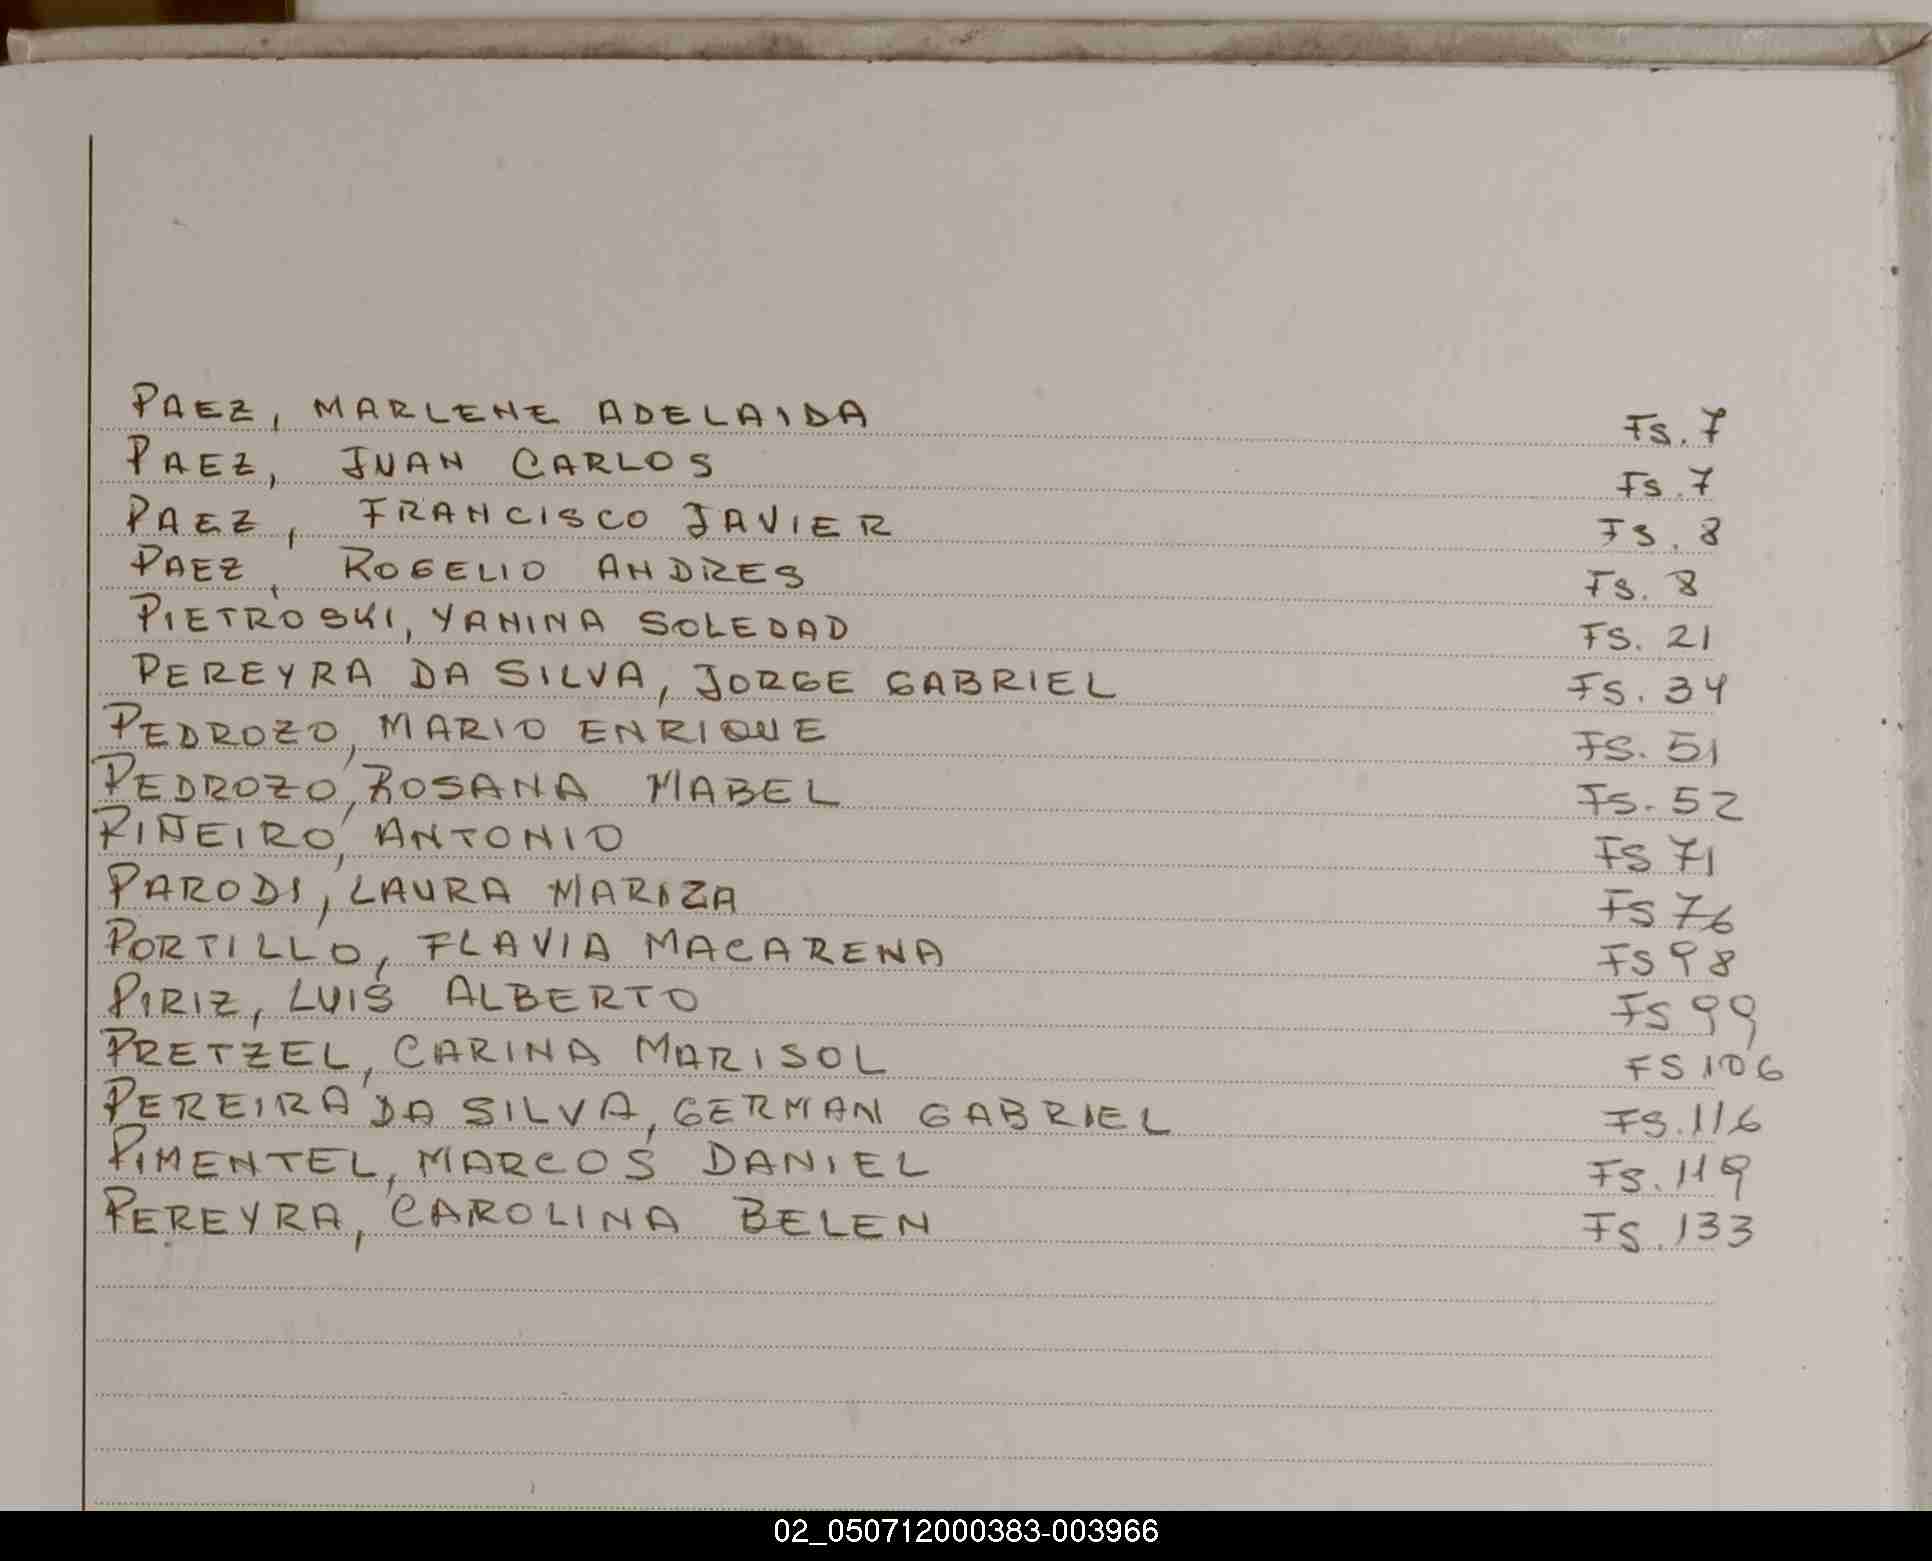 PAEZ, MARLENE ADELAIDA Fs. 7
PAEZ, JUAN CARLOS Fs. 7
PAEZ, FRANCISCO JAVIER Fs. 8
PAEZ, ROGELIO ANDRES Fs. 8
PIETROSKI, YANINA SOLEDAD FS. 21
PEREYRA DA SILVA, JORGE GABRIEL FS. 34
PEDROZO, MARIO ENRIQUE FS. 51
PEDROZO, ROSANA MABEL FS. 52
PIÑEIRO, ANTONIO FS 71
PARODI, LAURA MARIZA FS 76
PORTILLO, FLAVIA MACARENA FS 98
PIRIZ, LUIS ALBERTO FS 99
PRETZEL, CARINA MARISOL FS 106
PEREIRA DA SILVA, GERMAN GABRIEL FS. 116
PIMENTEL, MARCOS DANIEL FS. 119
PEREYRA, CAROLINA BELEN FS. 133
02_050712000383-003966